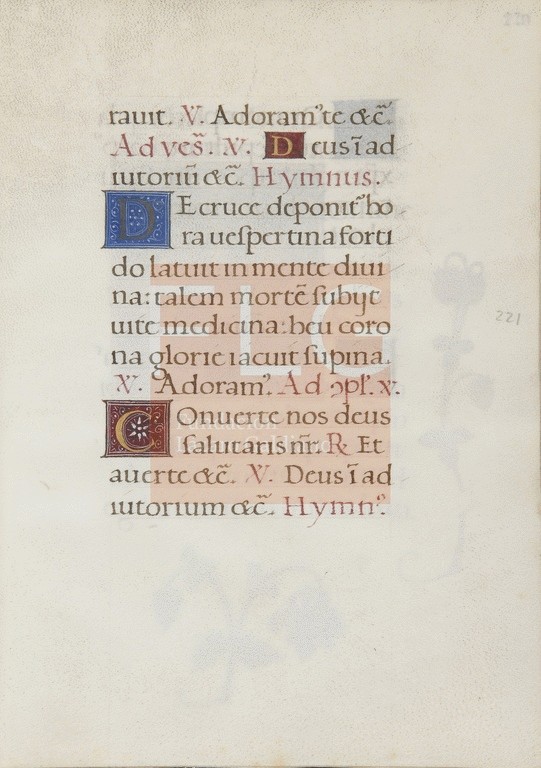 220
rauit. V. Adoram⁹te &c̃.
Ad ves̃. V. Deus ĩ ad
iutoriũ &c̃. Hymnus.
DE cruce deponit᷑ ho
ra uespertina forti
do latuit in mente diui
na: talem mortẽ subijt
uite medicina: heu coro
na glorie iacuit supina.
V. Adoram⁹. Ad ↄpl̃. V.
Conuerte nos deus
salutaris nr̃. R. Et
auerte &c̃. V. Deus ĩ ad
iutorium &c̃. Hymn⁹.
221
FLG
Fundación